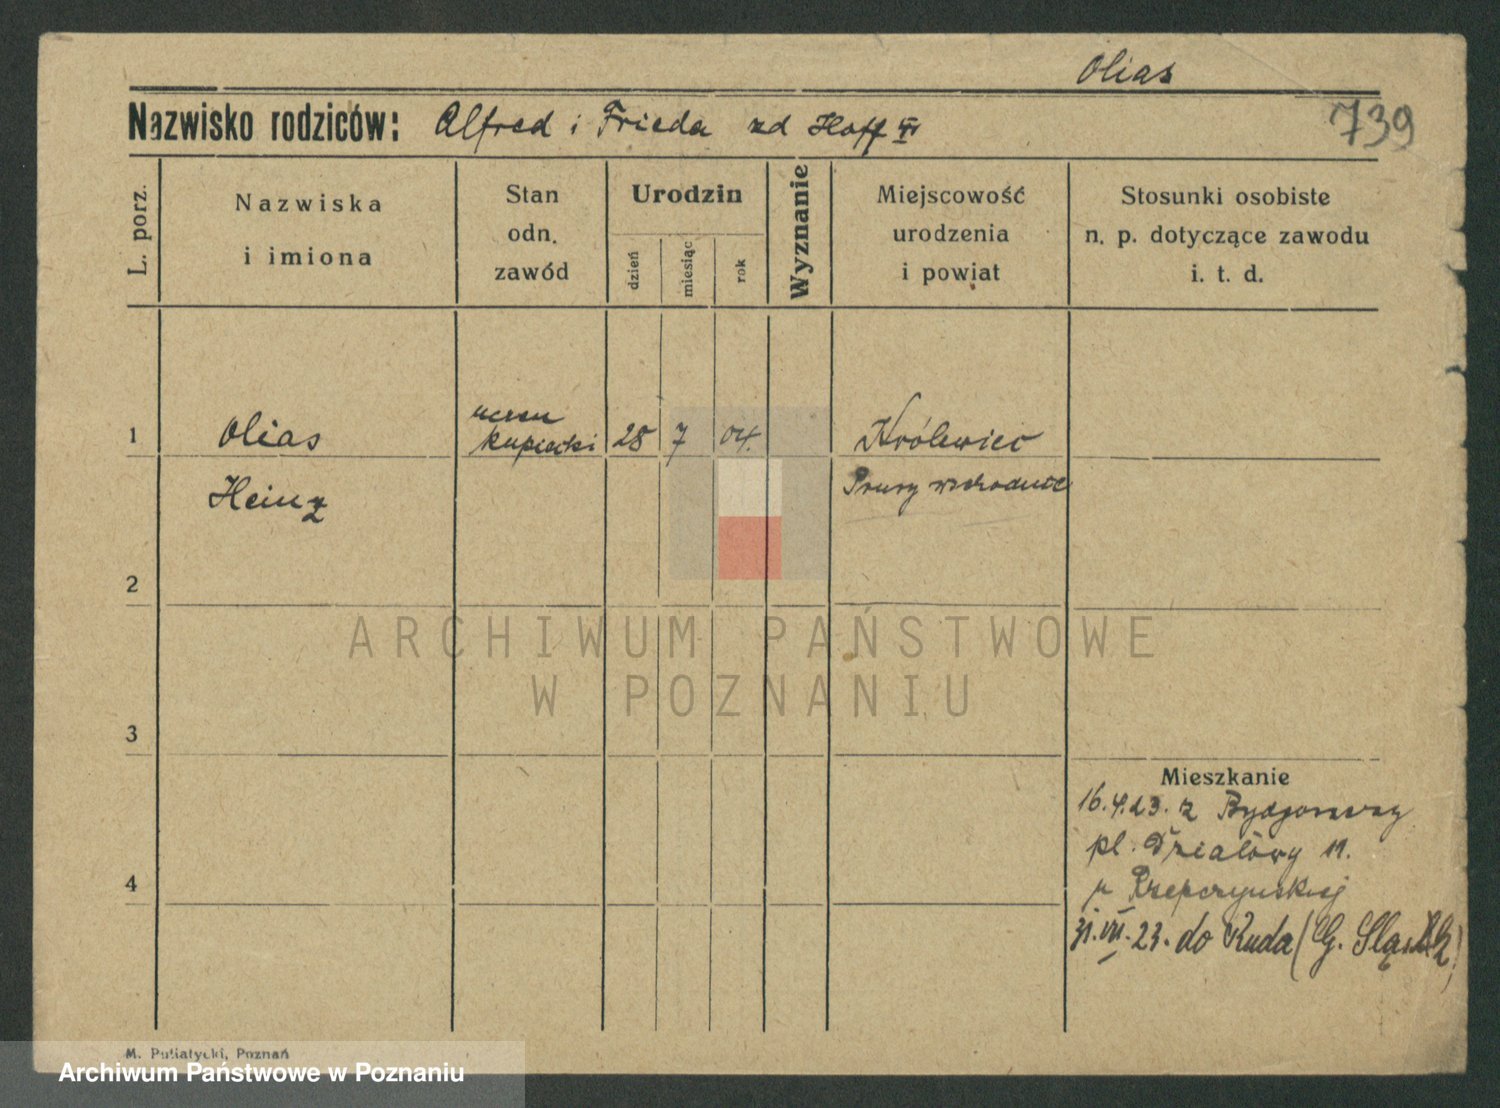 Olias
739
Nazwisko rodziców: Alfred i Frieda zd Hoff VI
L. porz.
Nazwiska
i imiona
Stan
odn.
zawód
Urodzin
dzień
miesiąc
rok
Wyznanie
Miejscowość
urodzenia
i powiat
Stosunki osobiste
n. p. dotyczące zawodu
i. t. d.
uczeń
1 Olias kupiecki 28 7 04. Królewiec
Heinz Prusy wschodnie
2
ARCHIWUM PAŃSTWOWE
W POZNANIU
3
Mieszkanie
16.4.23. z Bydgoszczy
pl. Działowy 11.
u Rzepczyńskiej
4
31.VII.23. do Ruda (G. Śląsk)
M. Putiatycki, Poznań
Archiwum Państwowe w Poznaniu